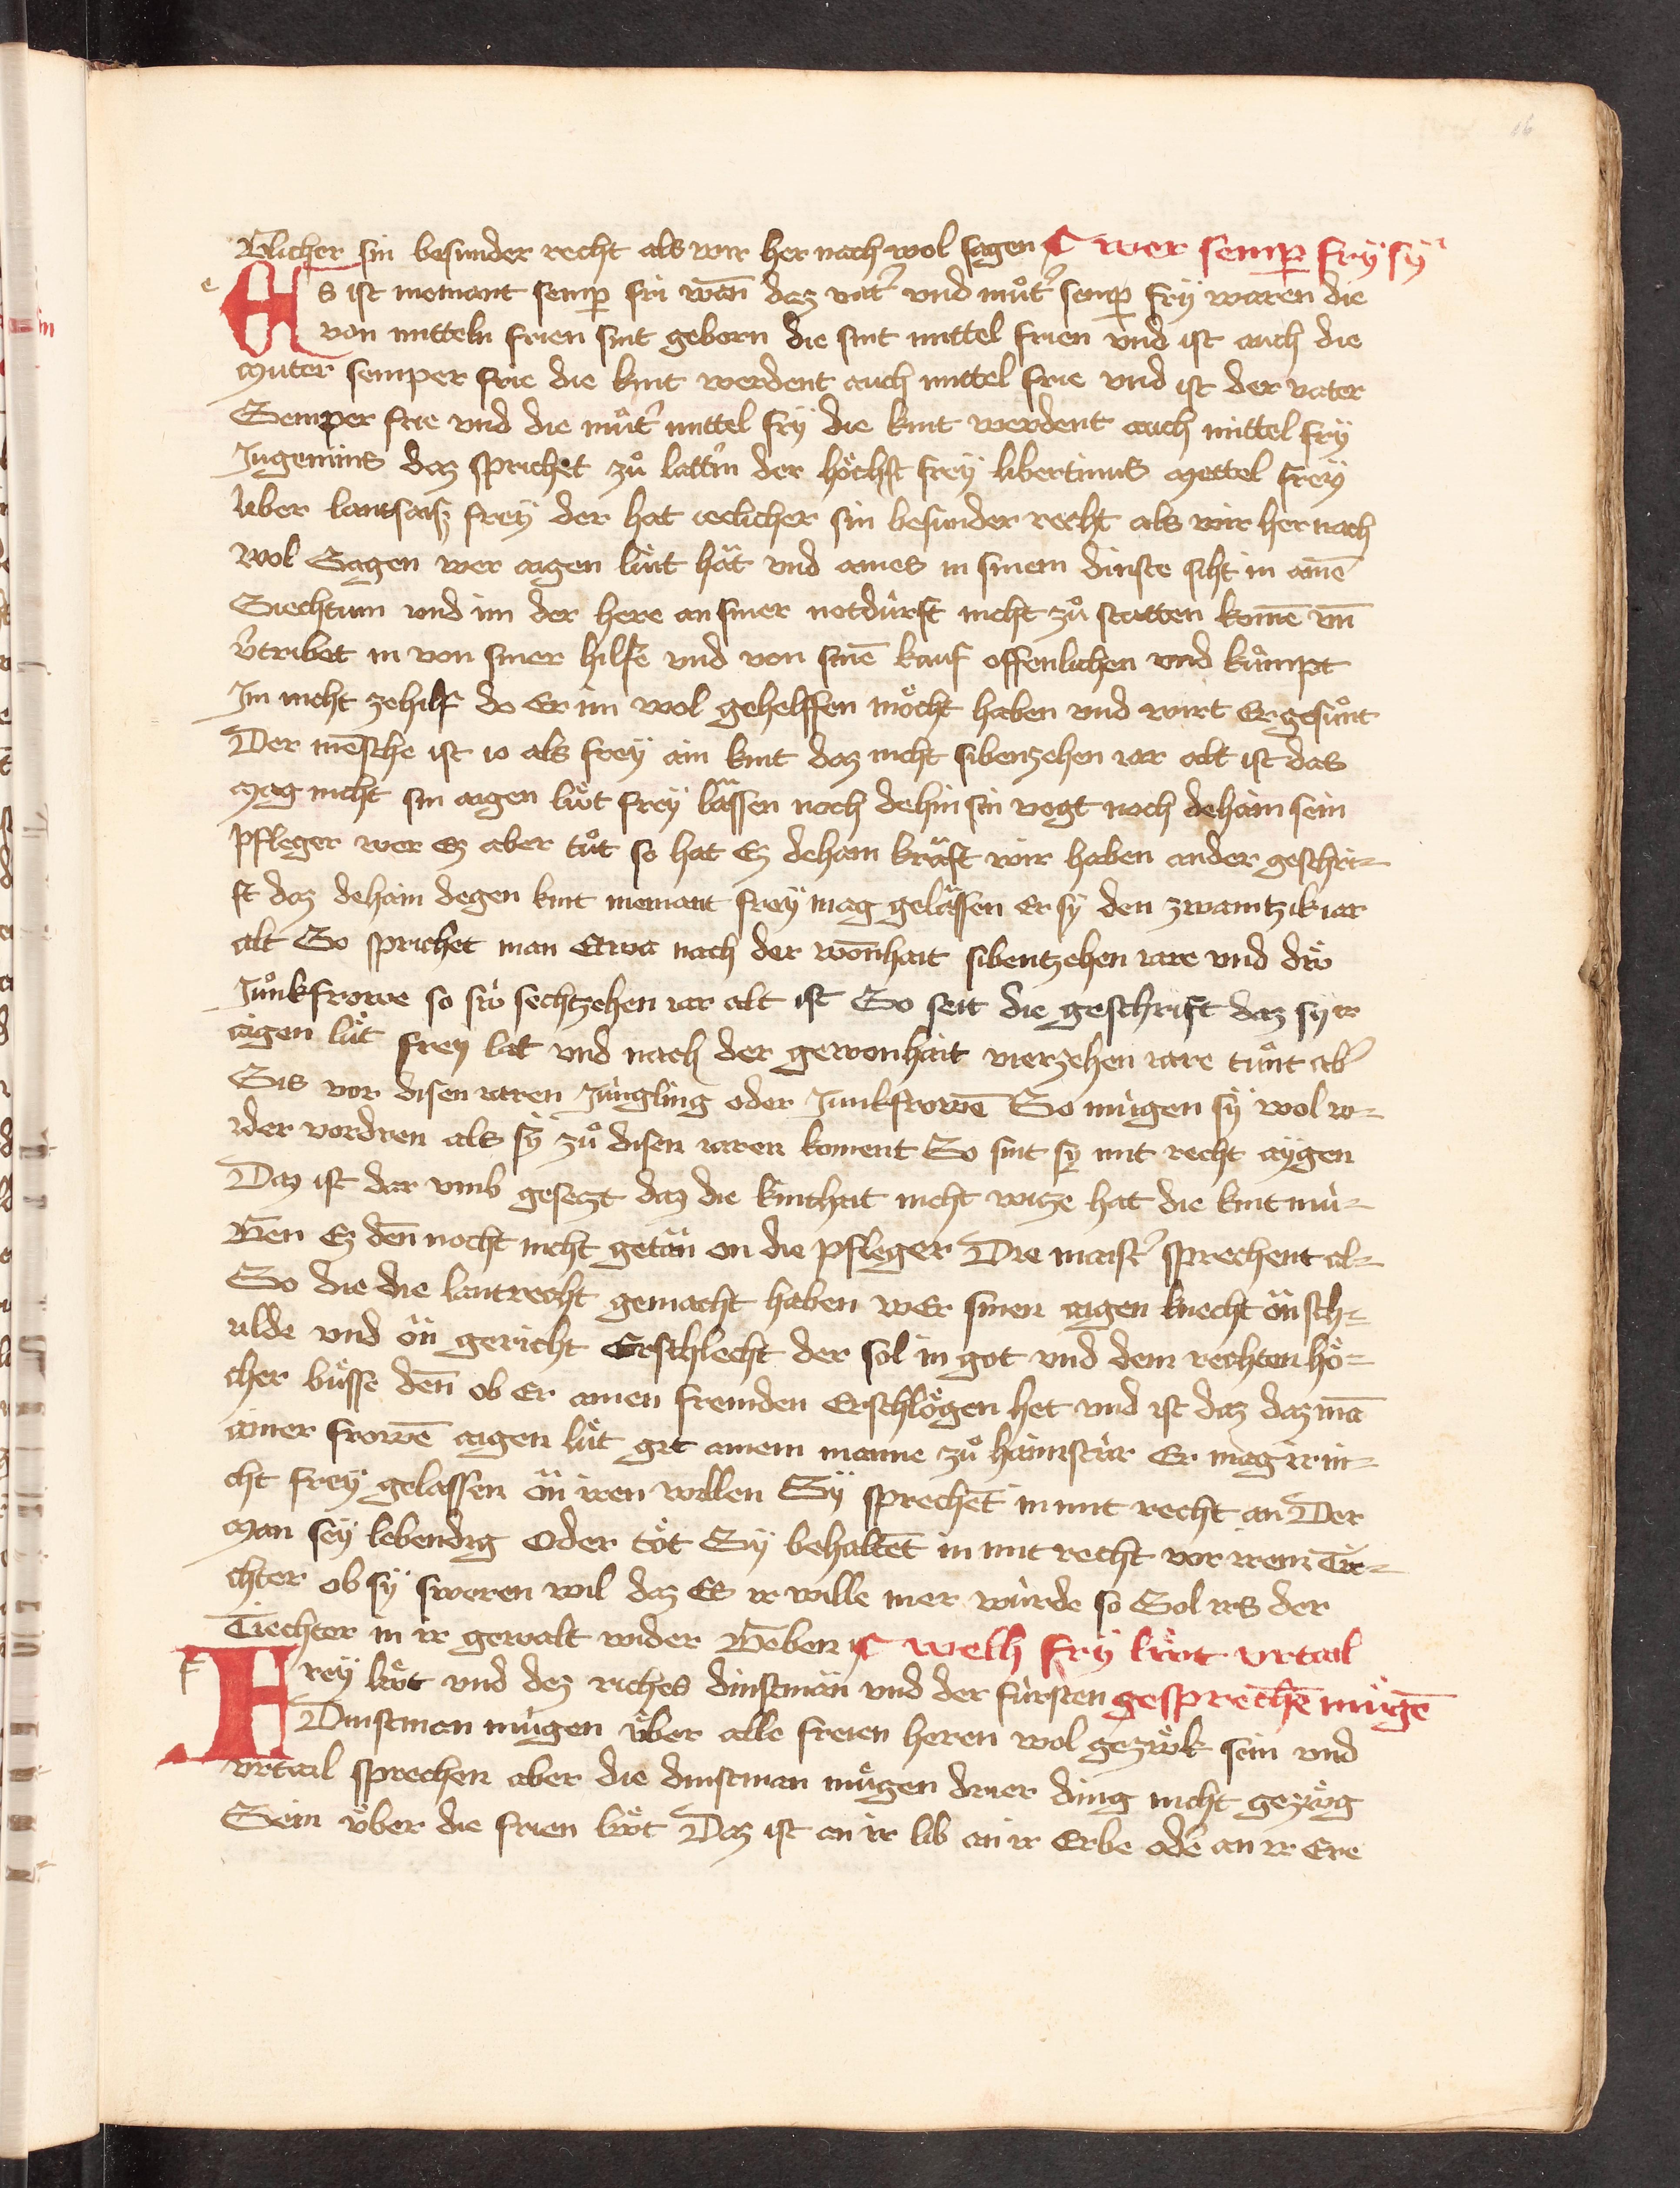 Glicher sin besunder recht als wir her nach wol sagen ¶ wer semp̄ fry sy
Es ist niemant semp̄ fri wan̄ daz vat̓ vnd můt̓ semp̄ fry waren die
von mitteln frien sint geborn die sint mittel frien vnd ist auch die
muter semper frie die kint werdent auch mittel frie vnd ist der vater
Semper frie vnd die můt̓ mittel fry die kint werdent auch mittel fry
Ingenuus daz sprichet zů lattin der höchst frey libertinus mettel frey
liber lantsaiz frey der hat ieclicher sin besunder recht als wir her nach
wol Sagen wer aigen lüt hät vnd aines in sinem dinste siht in ainē
Siechtum vnd im der here an siner notdürft nicht zů statten komē vn̄
v̓tribet in von siner hilfe vnd von sinē kauf offenlichen vnd kůmpt
Im nicht zehilf do Er im wol gehelffen möcht haben vnd wirt Er gesůnt
Der mēsche ist io als frey ain kint daz nicht sibenzehen iar alt ist das
mag nicht sin aigen lüt frey lässen noch dehin sin vogt noch dehain sein
pfleger wer Ez aber tůt so hat Ez dehain kräft wir haben ander geschri-
ft daz dehain degen kint niemant frey mag gelässen Er sy den zwaintzik iar
alt So sprichet man Etwa nach der wonhait sibentzehen iare vnd drö
Junkfrowe so sü sechtzehen iar alt ist So seit die geschrift daz sy ir
aigen lüt frey lat vnd nach der gewonhait vierzehen iare tůnt ab̓
Sis vor disen iaren Jüngling oder Junkfrowē So mügen sy wol w-
ider vordren als sy zů disen iaren koment So sint sy mit recht aygen
Daz ist dar vmb gesetzt daz die kinthait nicht witze hat die kint mü-
Gen Ez den̄nocht nicht getän on die pfleger Die maist̓ sprechent al-
So die die lantrecht gemacht haben wEr sinen aigen knecht ön sch-
ulde vnd ön gericht Erschlecht der sol in got vnd dem rechten hö-
cher büsse den̄ ob Er ainen fremden Erschlögen het vnd ist daz daz mā
ainer frowē aigen lüt git ainem manne zů haimstür Er mag ir ni-
cht frey gelassen ön iren willen Sy sprechēt in mit recht an Der
man sey lebendig Oder töt Sy behaltēt in mit recht vor irem Rie-
chter ob sy sweren wil daz Es ir wille nier würde so Sol irs der
Riechter in ir gewalt wider Geben ¶ welh fry lüt vrtail
Frey lüt vnd dez riches dinstmän vnd der fürsten gesprechē mügē
Dinstman mügen über alle freien heren wol gezwök sein vnd
vrtail sprechen aber die dinstman mügen drier ding nicht gezüög
Sein über die frien lüt Daz ist an ir lib an ir Erbe odē an ir Ere